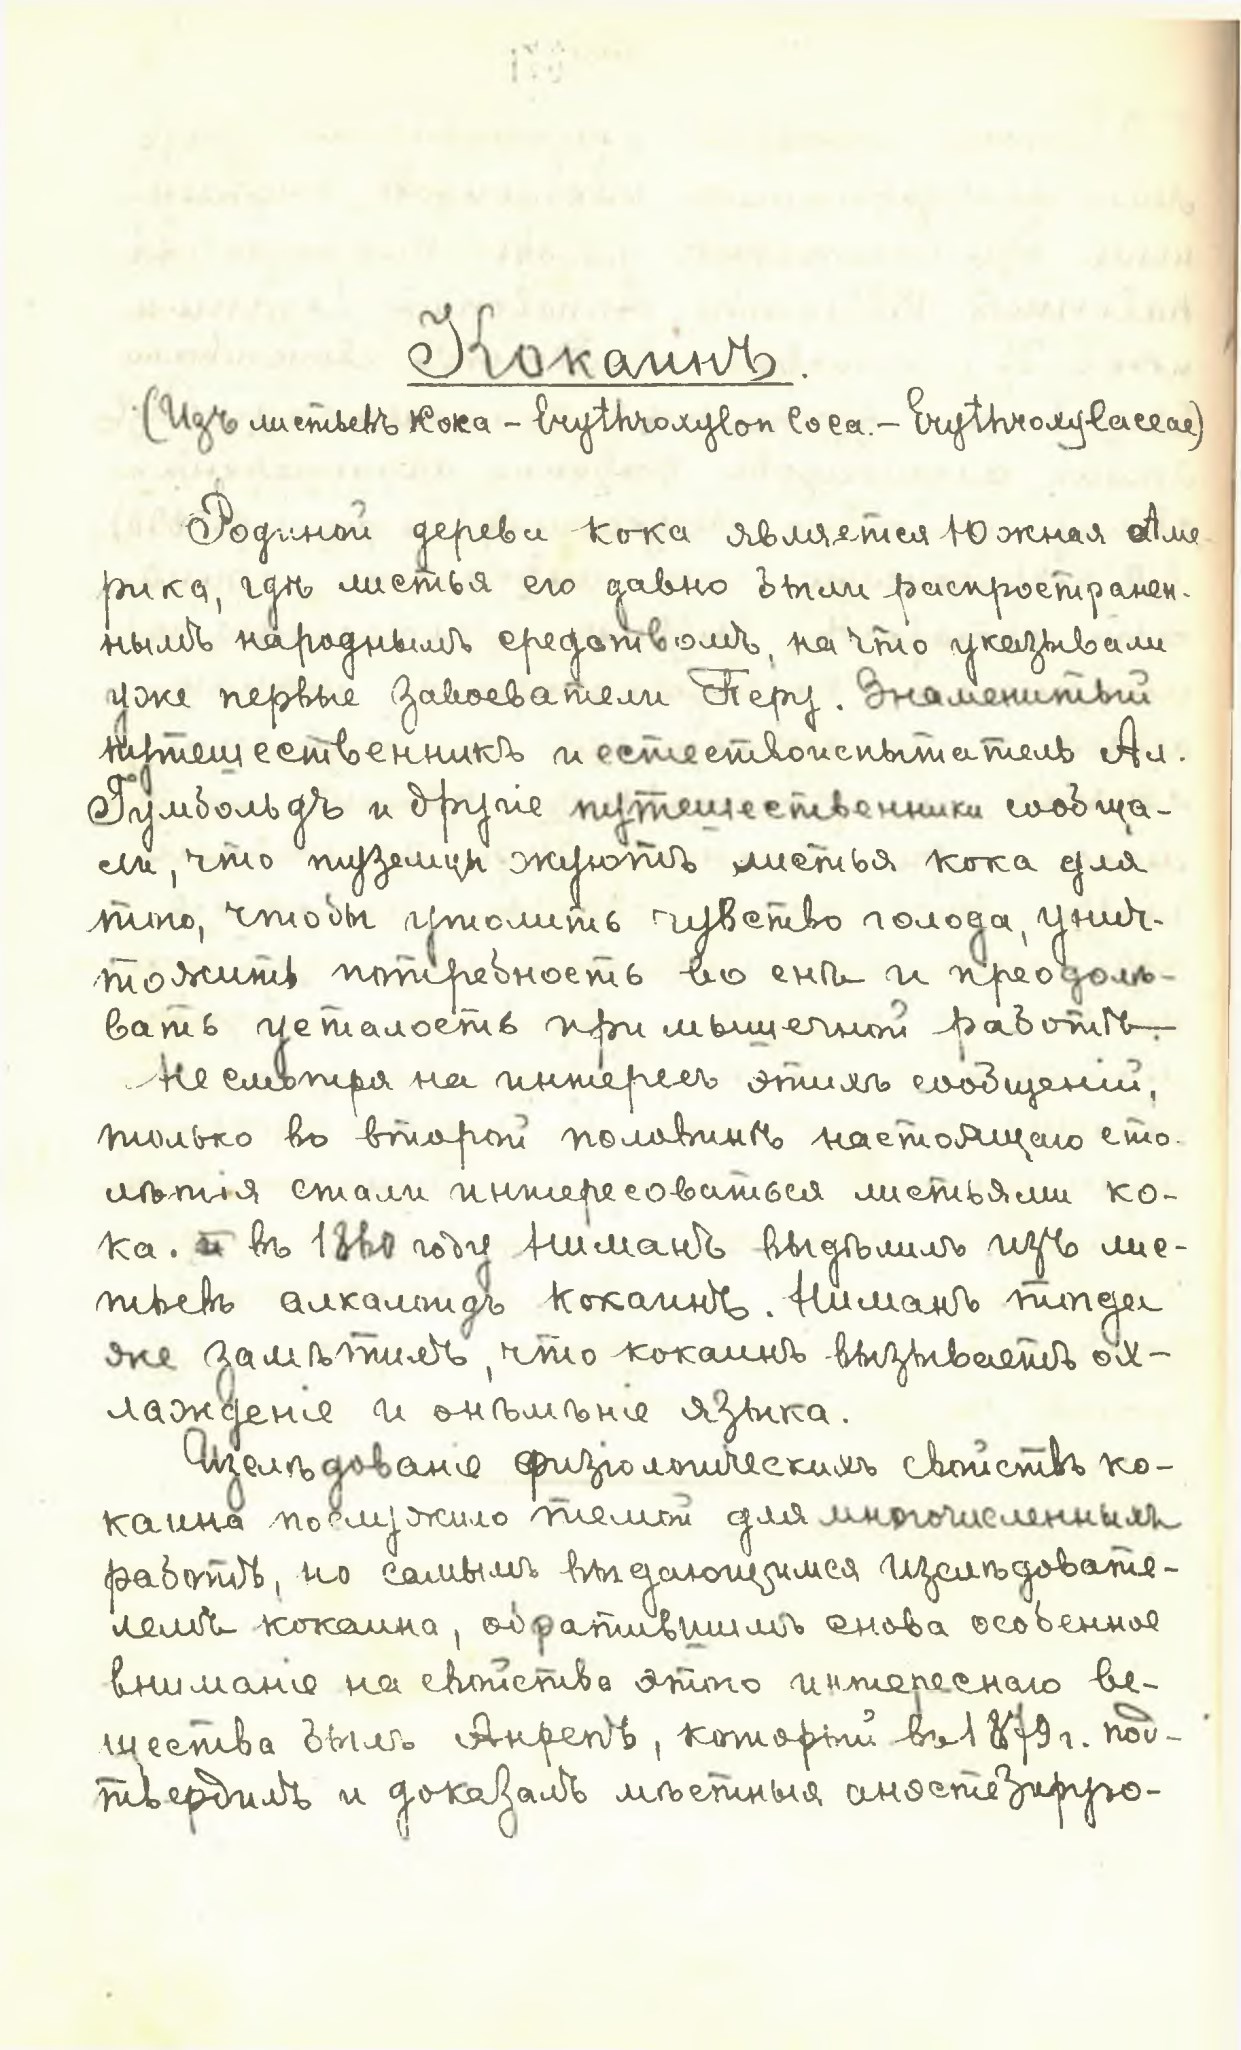 Кокаинъ.
(Изъ листьевъ Кока – Erythroxylon Coca. – Erythroxylaceae)
Родиной дерева кока является Южная Аме-
рика, гдѣ листья его давно были распространен-
нымъ народнымъ средствомъ, на что указывали
уже первые завоеватели Перу. Знаменитый
путешественникъ и естествоиспытатель Ал.
Гумбольдъ и другіе путешественники сообща-
ли, что туземцы жуютъ листья кока для
того, чтобы утолить чувство голода, унич-
тожить потребность во снѣ и преодолѣ-
вать усталость при мышечной работѣ.
Не смотря на интересъ этихъ сообщеній,
только во второй половинѣ настоящаго сто-
лѣтія стали интересоваться листьями ко-
ка. и въ 1860 году Ниманъ выдѣлилъ изъ лис-
тьевъ алкалоидъ кокаинъ. Ниманъ тогда
же замѣтилъ, что кокаинъ вызываетъ ох-
лажденіе и онѣмѣніе языка.
Изслѣдованіе физіологическихъ свойствъ ко-
каина послужило темой для многочисленныхъ
работъ, но самымъ выдающимся изслѣдовате-
лемъ кокаина, обратившимъ снова особенное
вниманіе на свойства этого интереснаго ве-
щества былъ Анрепъ, который въ 1879 г. под-
твердилъ и доказалъ мѣстныя анэстезирую-